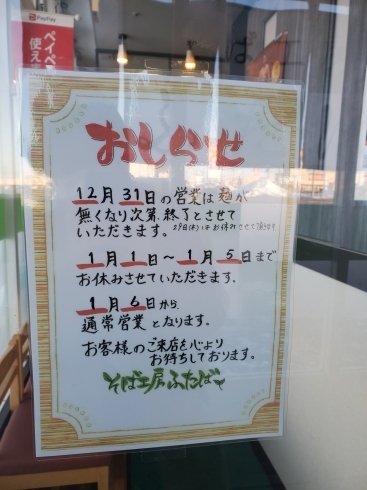 PayPay
ペイペ
使えま
おしらせ
12月31日の営業は麺が
無くなり次第、終了とさせて
いただきます。29日(木)はお休みさせて頂きます
1月1日〜1月5日まで
お休みさせていただきます。
1月6日から
通常営業となります。
お客様のご来店を心より
お待ちしております。
そば工房ふたばや